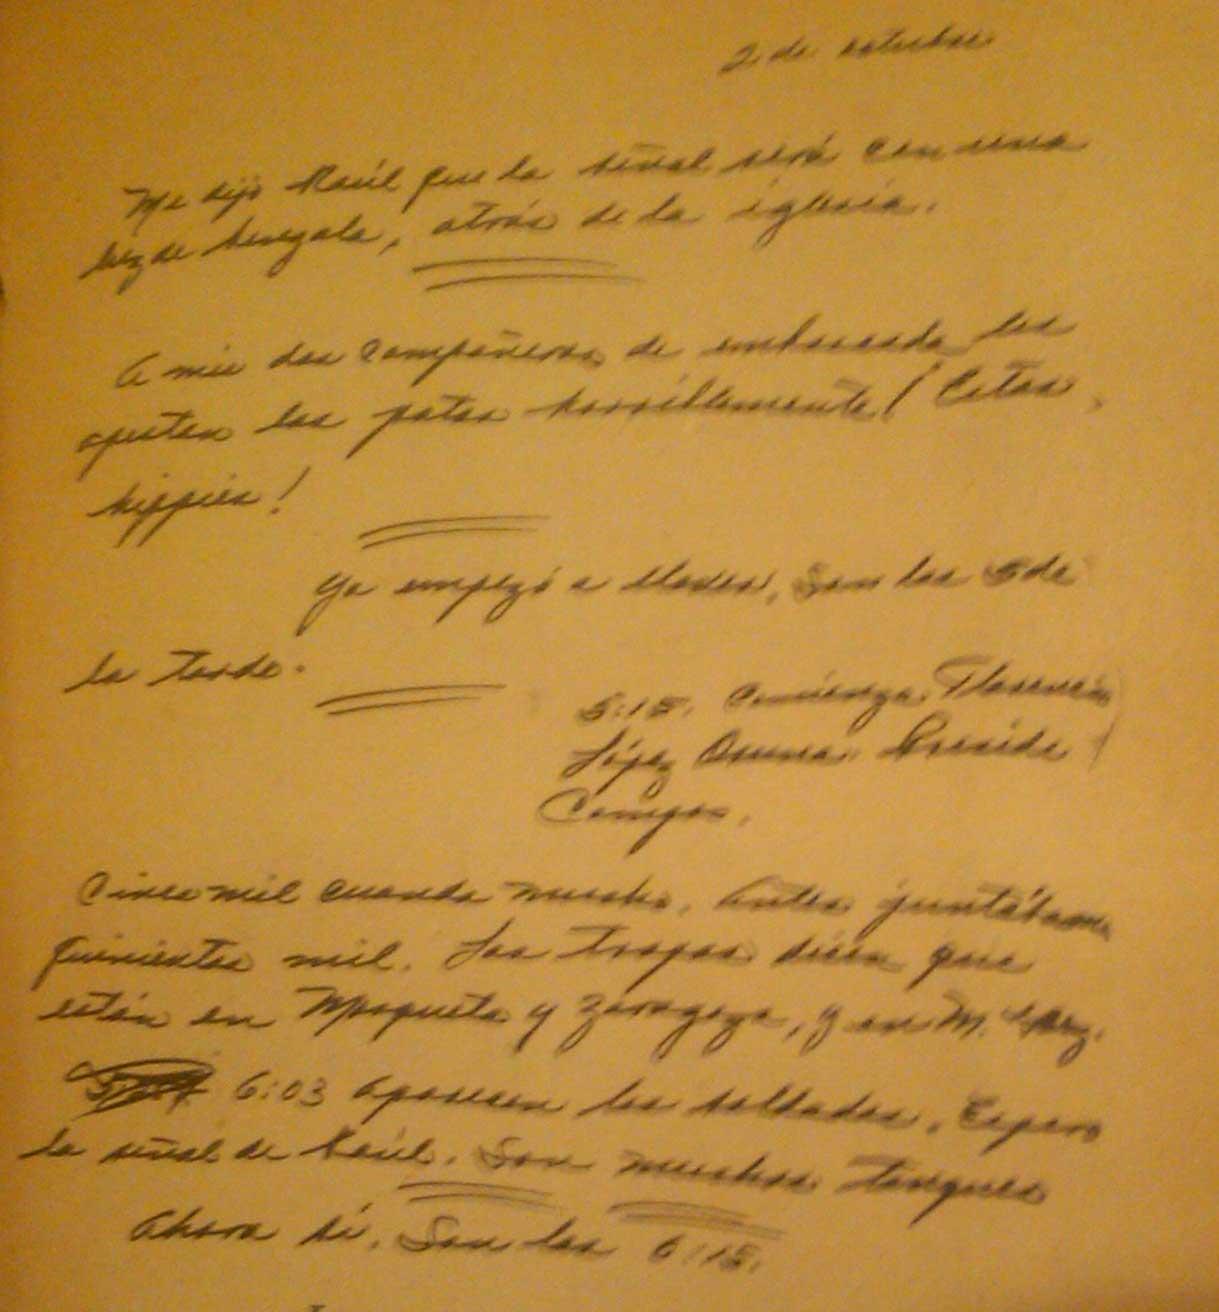 2 de octubre
Me dijo Raúl que la señal será con una
luz de bengala, atrás de la iglesia.
A mis dos compañeros de emboscada les
apestan las patas horriblemente! Estos
hippies!
Ya empezó a llover. Son las 5 de
la tarde.
5:15. Comienza. Florencio
López Osuna. Preside
Campos.
Cinco mil cuando mucho. Antes juntábamos
quinientos mil. Las tropas dicen que
están en Mosqueta y Zaragoza, y en M. Glez.
6:03 Aparecen los soldados. Espero
la señal de Raúl. Son muchos tanques
Ahora sí. Son las 6:15.